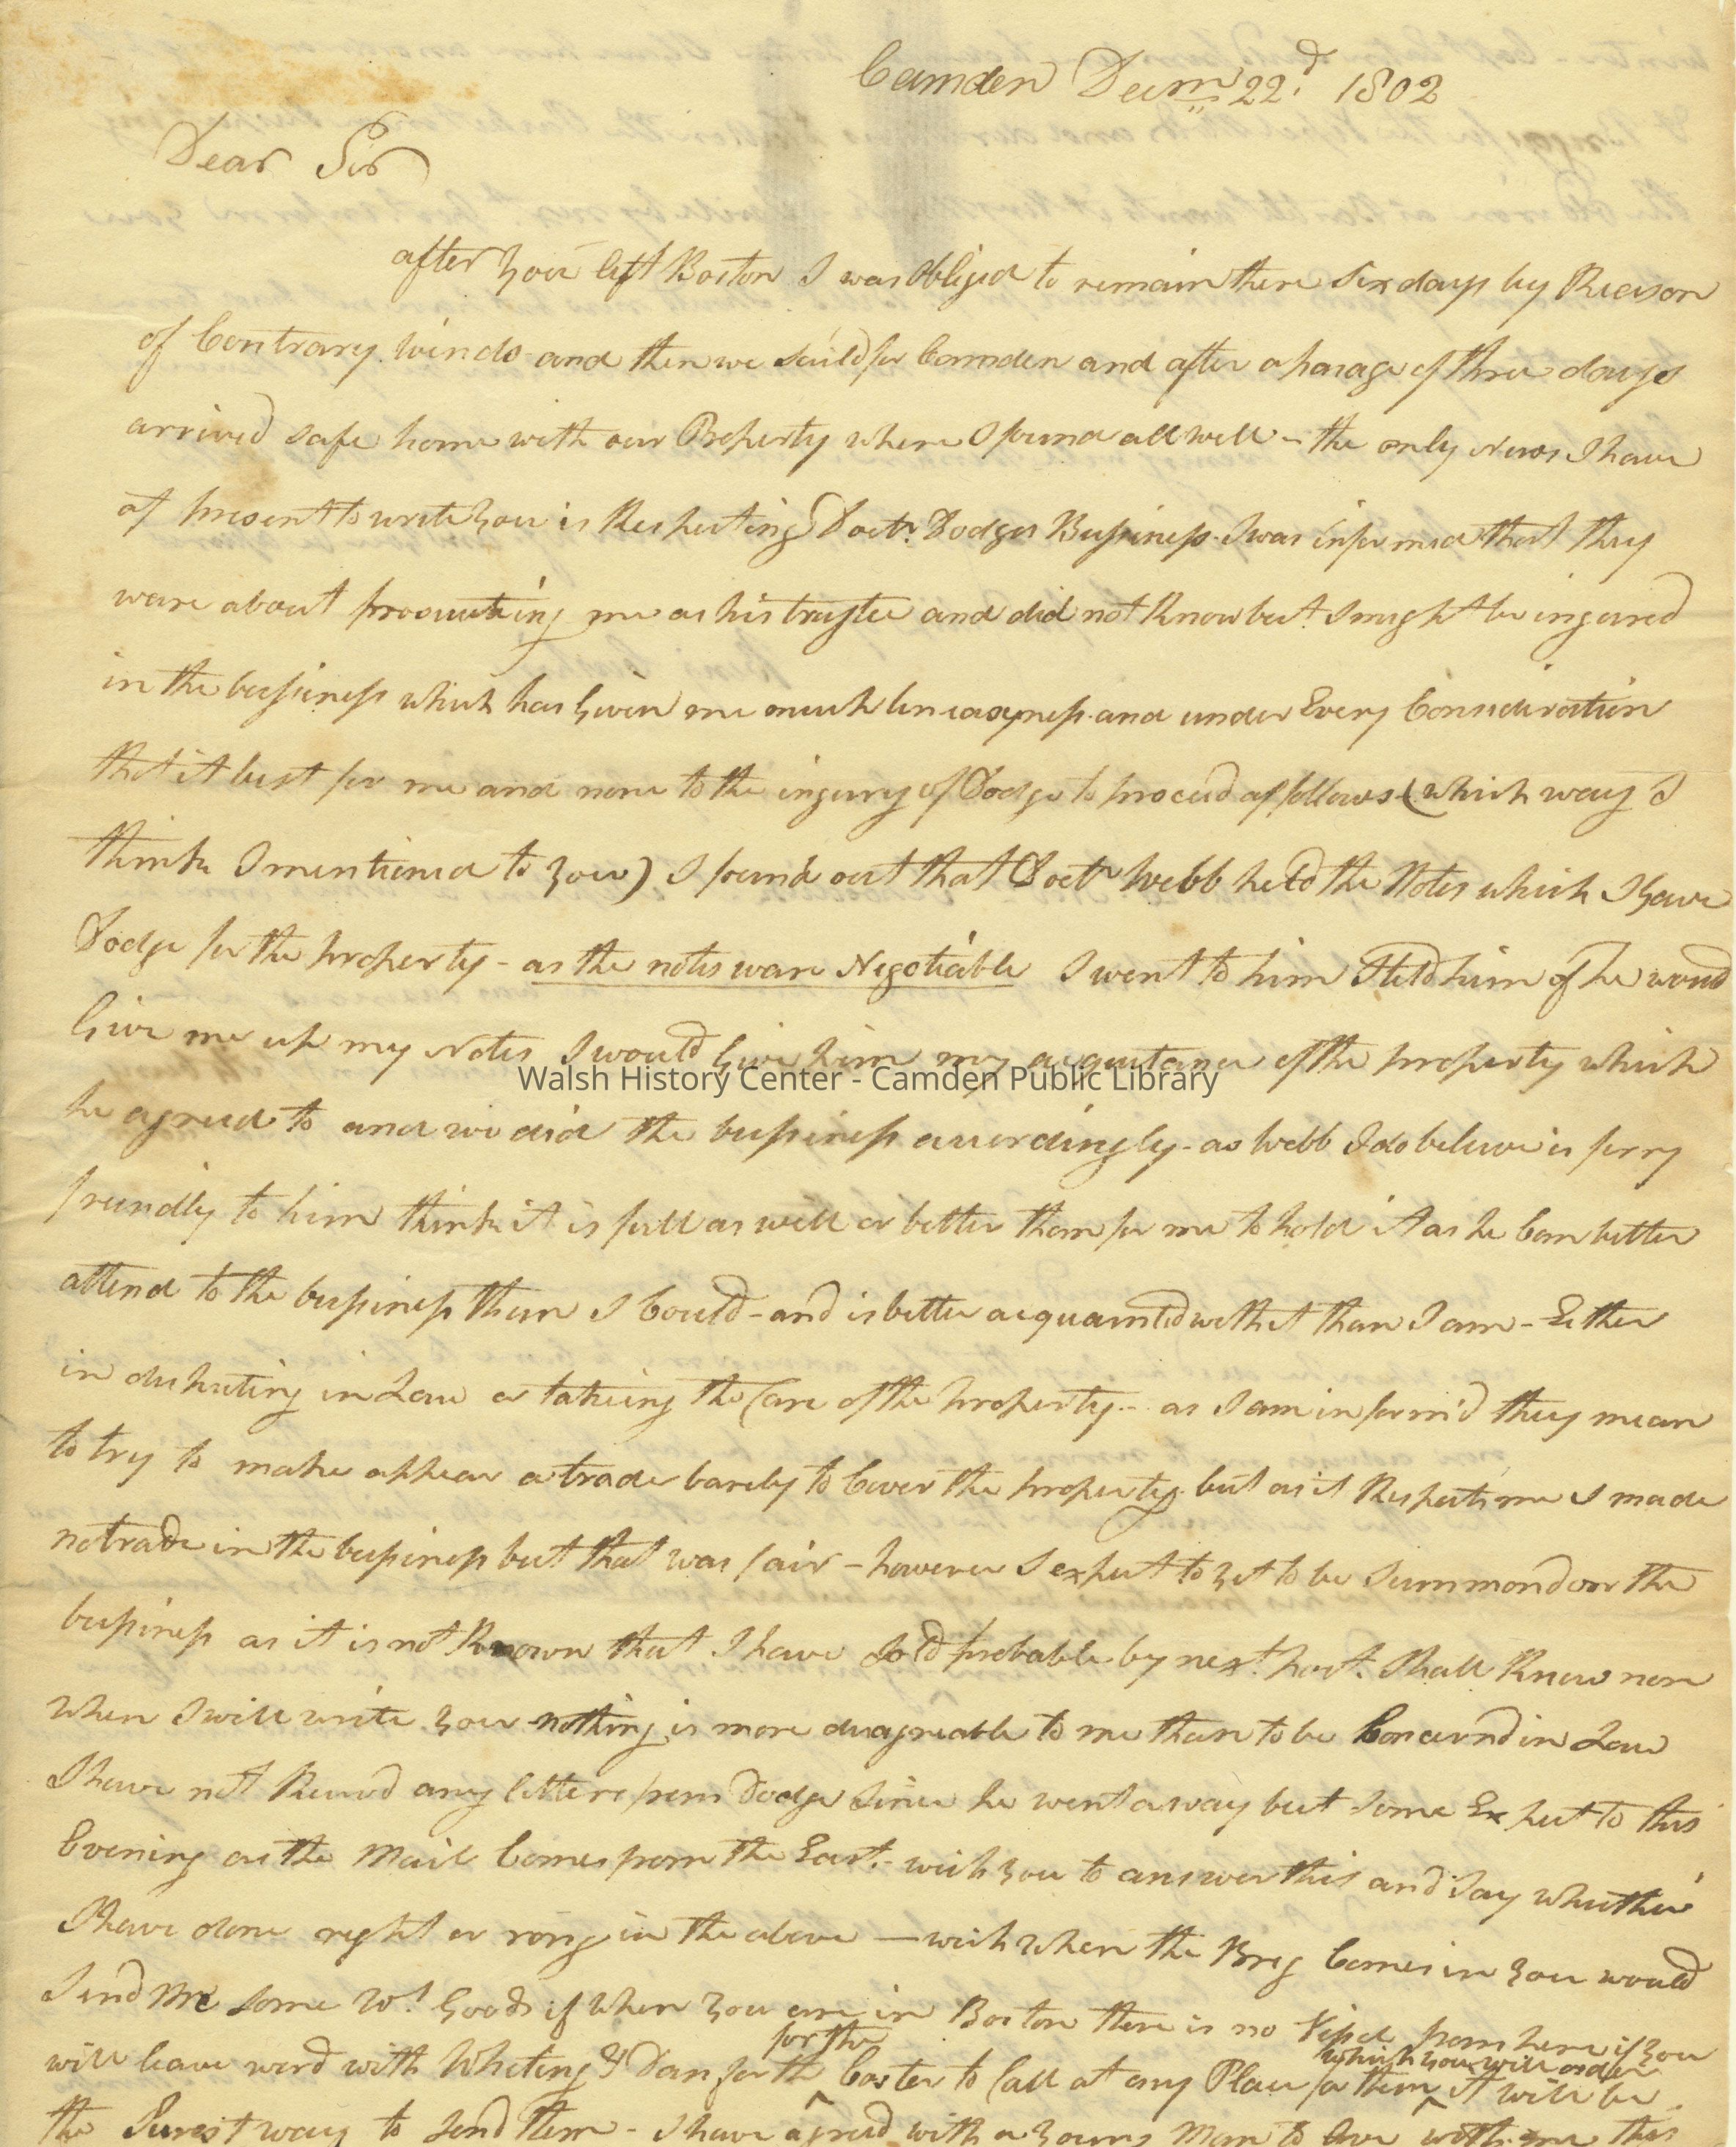 Camden Decm 22d 1802
Dear Sir
after you left Boston I was Obliged to remain there Six days by Reason
of Contrary winds and then we Saild for Camden and after a pasage of three days
arrived safe home with our Property where I found all well - the only News I have
at present to write you is Respecting Doctr. Dodges Bussiness. I was informed that they
ware about prosecuteing me as his trustee and did not Know but I might be ingured
in the bussiness which has Given me much Uneasyness and under Every Consideration
that it best for me and none to the ingury of Dodge to proceed as follows (which way I
think I mentioned to you) I found out that Doctr Webb held the Notes which I Gave
Dodge for the property - as the notes ware Negotiable I went to him & told him if he would
Give me up my Notes I would Give him my acquitance of the property which
Walsh History Center - Camden Public Library
he agreed to and we did the bussiness accordingly - as Webb I do beleive is
freindly to him think it is full as well or better than for me to hold it as he Can better
attend to the bussiness than I Could - and is better acquainted with it than I am - Either
in disputing in Law or takeing the Care of the property - as I am inform'd they mean
to try to make appear a trade barely to Cover the property but as it Respects me I made
no trade in the bussiness but that was fair - however I expect to get to be Summond on the
bussiness as it is not Known that I have Sold probable by next post. I hall Know more
when I will write you nothing is more disagreable to me than to be Concernd in Law
I have not Receivd any letters from Dodge Since he went away but some Expect to this
Evening as the Mail Comes from the East. - wish you to answer this and Say whether
I have done right or rong in the above — wish when the Brig Comes in you would
Send Me some W.I. Goods if when you are in Boston there is no Vessel from here if you
will leave word with Whiting & Danforth for the Coster to Call at any Place for them which you will order it will be
the Surest way to Send them - I have agreed with a Young Man to live with me this